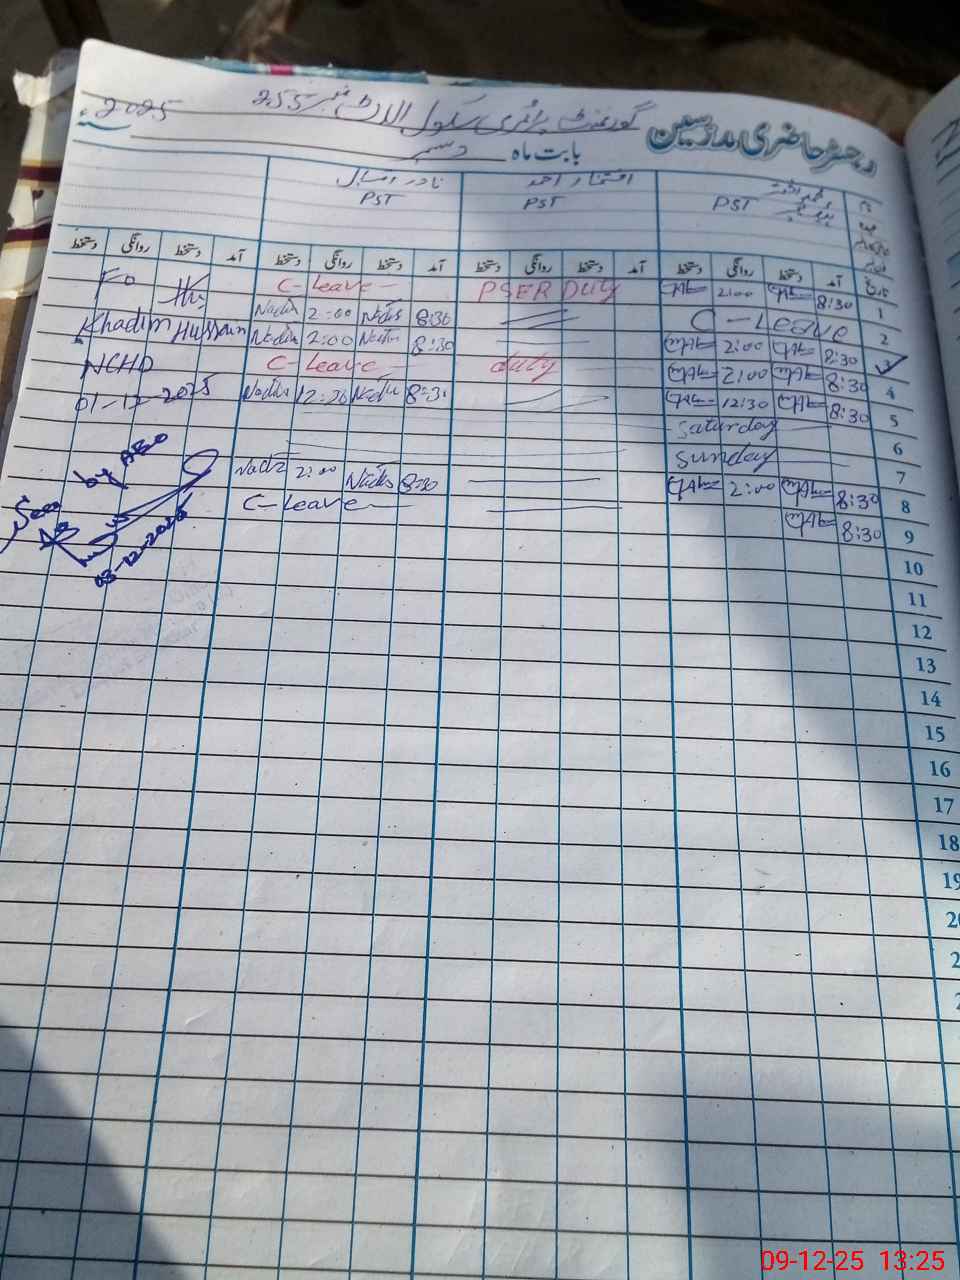 رجسٹر حاضری مدرسین گورنمنٹ پرائمری سکول الارٹ نمبر 255
بابت ماہ دسمبر 2025
افتخار احمد نادر
PST PST PST
آمد دستخط روانگی دستخط آمد دستخط روانگی دستخط آمد دستخط روانگی دستخط
تاریخ
1 8:30 2:00 PSER Duty C-Leave
2 C-Leave 8:30 Nadir 2:00 Nadir
3 8:30 2:00 8:30 Nadir 2:00 Nadir
4 8:30 2:00 duty C-Leave
5 8:30 12:30 8:31 Nadir 12:30 Nadir
6 Saturday
7 Sunday
8 8:30 2:00 8:30 Nadir 2:00 Nadir
9 8:30 C-Leave
10
11
12
13
14
15
16
17
18
Fo
Khadim Hussain
NCHD
01-12-2025
Seen by AEO
03-12-2025
09-12-25 13:25